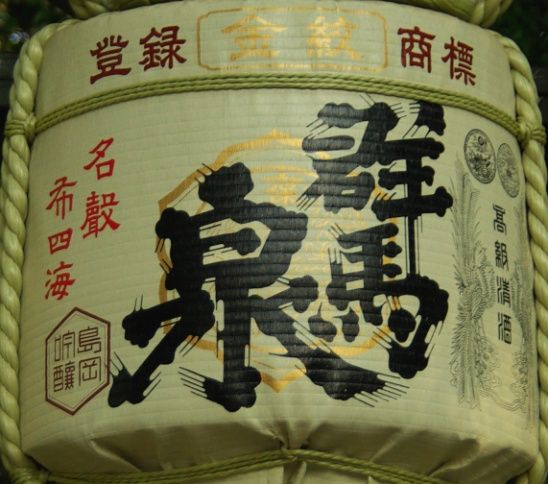 登録 金紋 商標
高級清酒
群馬
泉
名聲
布四海
島岡
吟釀